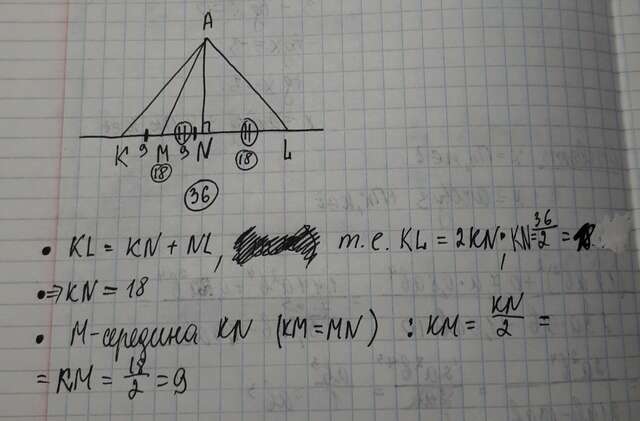 A
K 9 M 9 N L
18 18
36
• KL = KN + NL, т.е. KL = 2KN; KN = 36/2 = 18
• ⇒ KN = 18
• M-середина KN (KM = MN) : KM = KN/2 =
= KM = 18/2 = 9